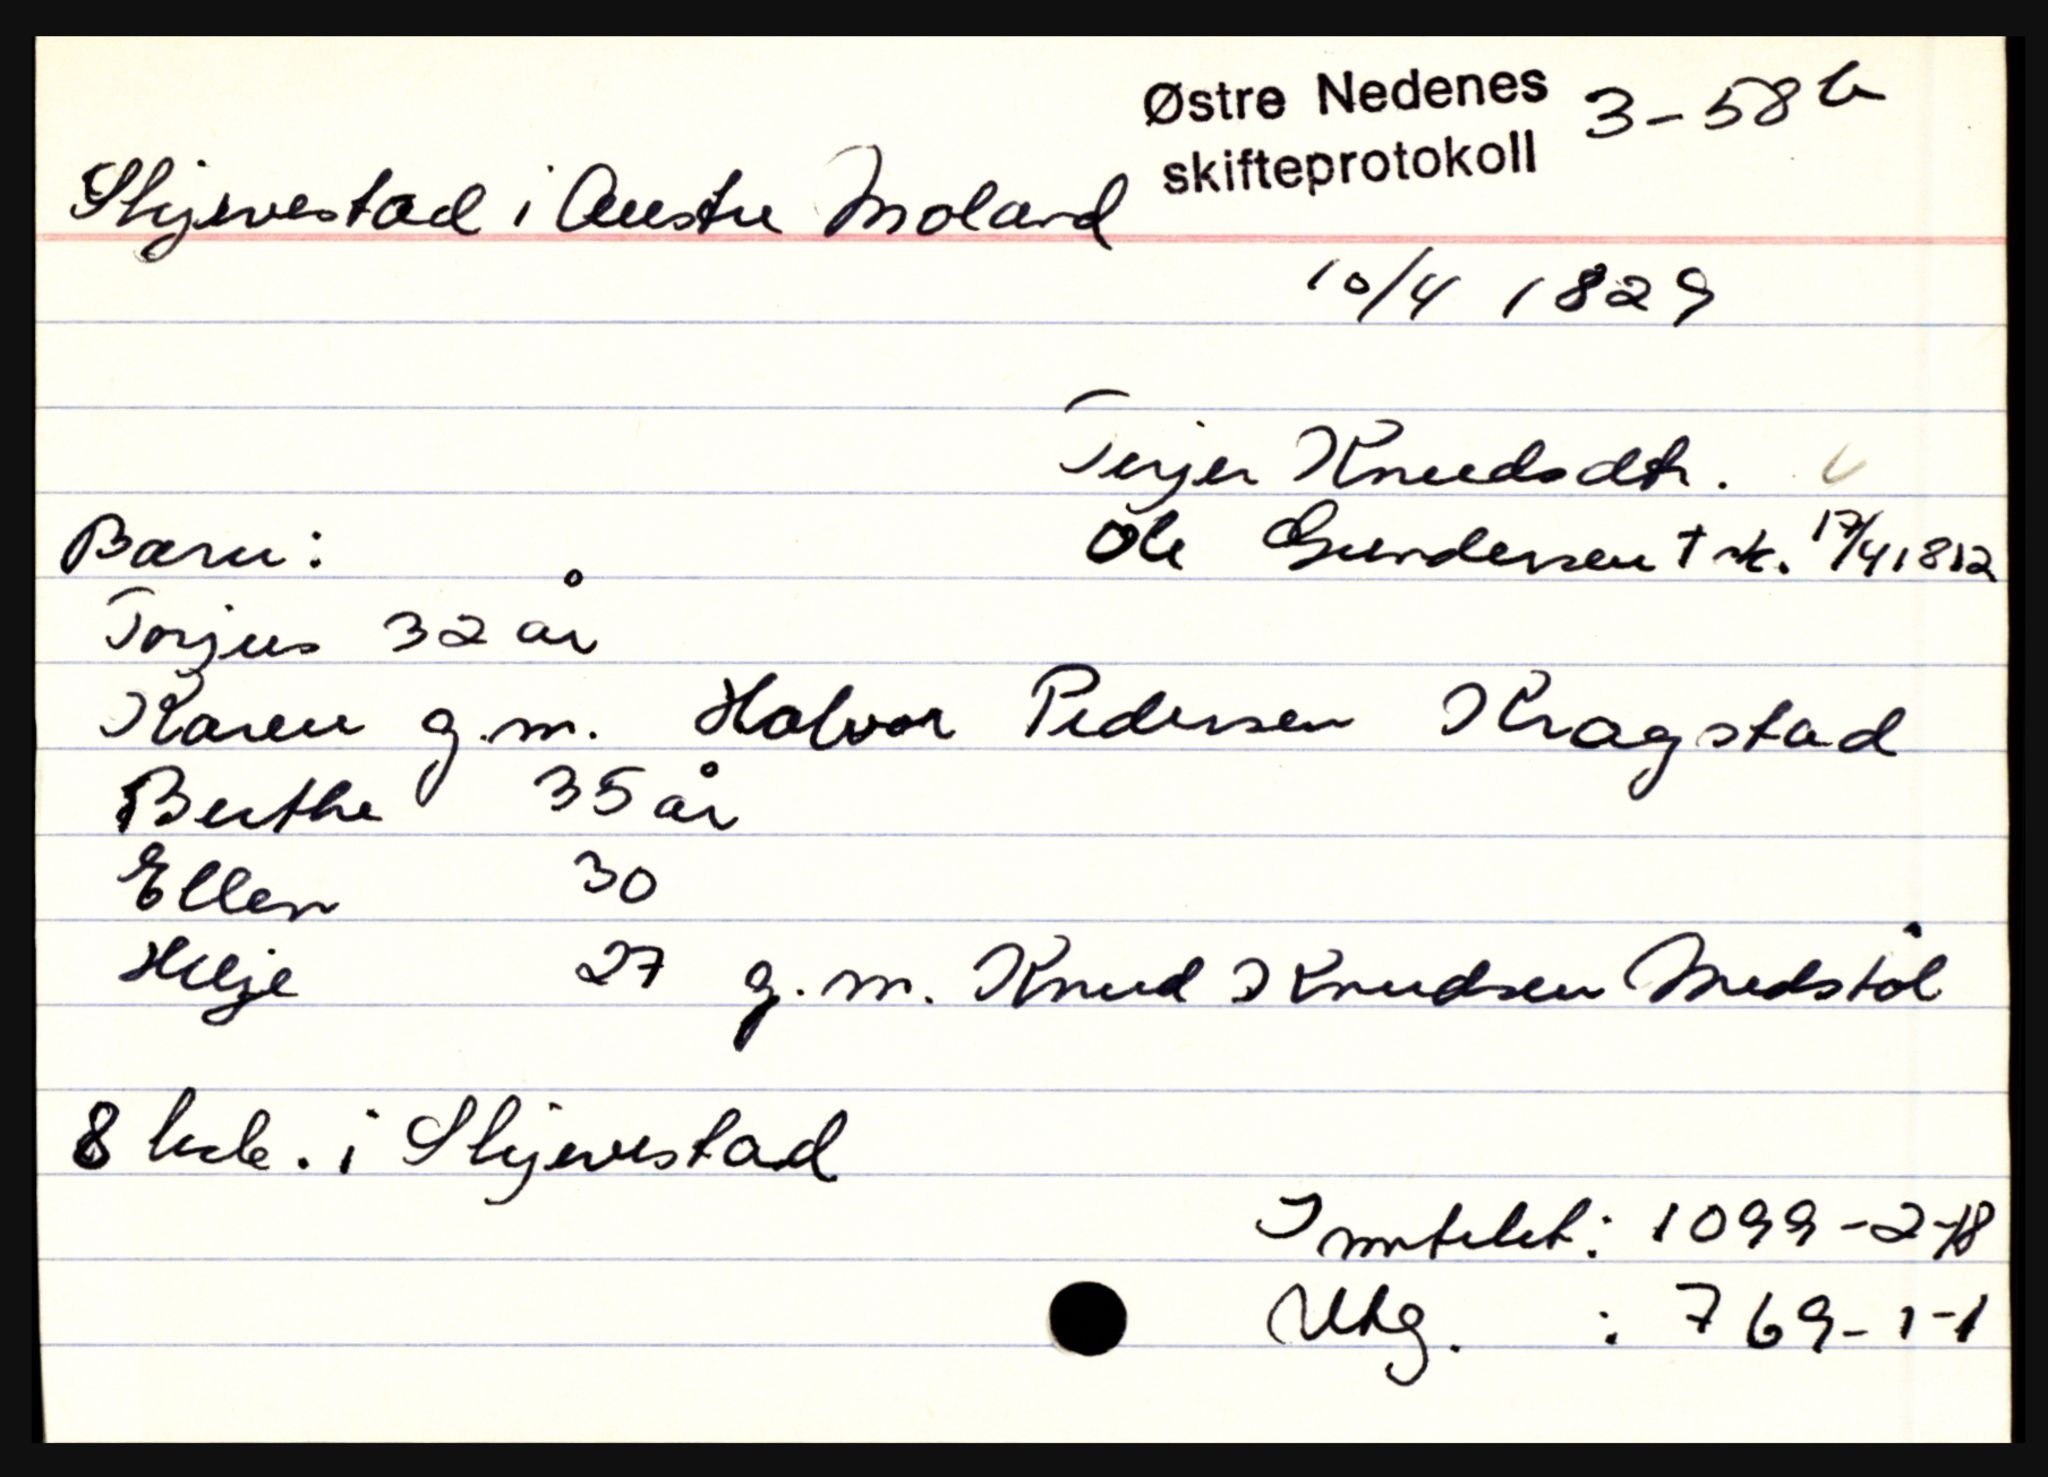 Østre Nedenes 3-58b
skifteprotokoll
Skjevestad i Austre Moland
10/4 1829
Terjer Knudsdtr.
Barn: Ole Gundersen † sk. 17/4 1812
Torjus 32 år
Karen g.m. Halvor Pedersen Kragstad
Berthe 35 år
Ellen 30
Helje 27 g.m. Knud Knudsen Medstøl
8 kalv. i Skjevestad
Inntekt: 1099-2-18
Utg. : 769-1-1